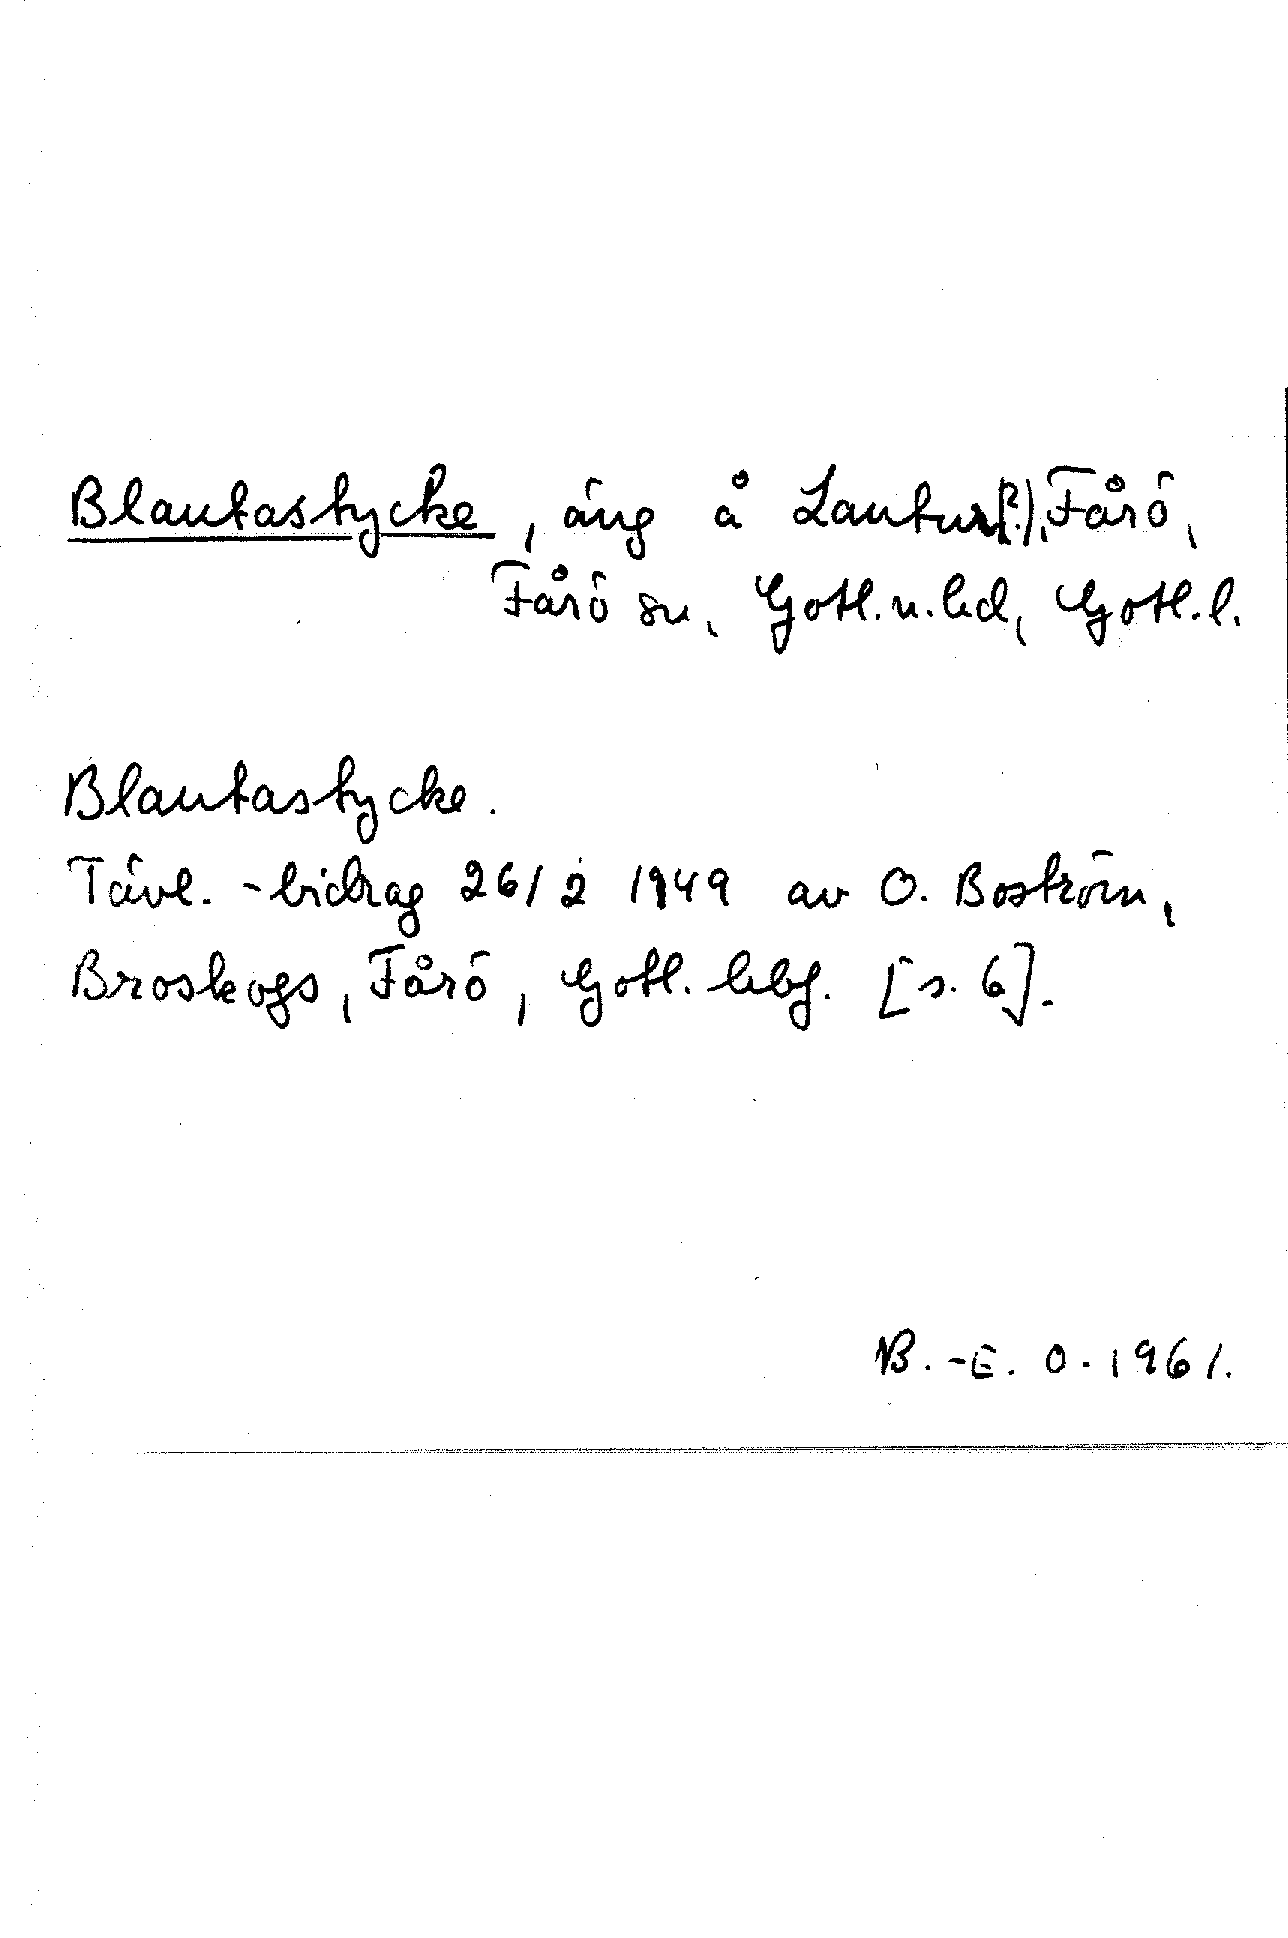 Blautastycke, äng å Lautur(?), Fårö,
Fårö sn, Gotl.n.hd, Gotl.l.
Blautastycke.
Tävl.-bidrag 26/2 1949 av O. Boström,
Broskogs, Fårö, Gotl. hbf. [s. 6].
B.-E. O. 1961.